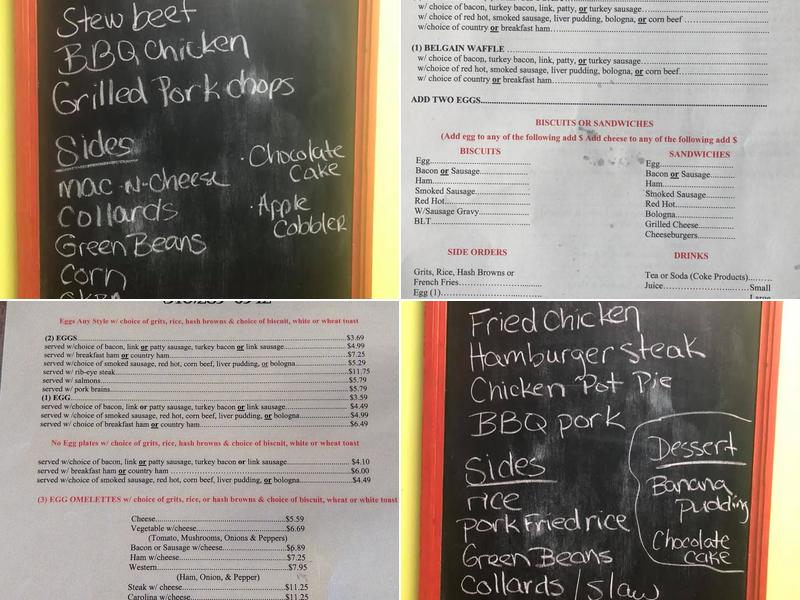 Stew beef
BBQ Chicken
Grilled Pork chops
Sides
mac-N-cheese
Collards
Green Beans
corn
okra
· Chocolate
Cake
· Apple
Cobbler
w/ choice of bacon, turkey bacon, link, patty, or turkey sausage
w/choice of red hot, smoked sausage, liver pudding, bologna, or corn beef
w/choice of country or breakfast ham
(1) BELGAIN WAFFLE
w/ choice of bacon, turkey bacon, link, patty, or turkey sausage
w/choice of red hot, smoked sausage, liver pudding, bologna, or corn beef
w/ choice of country or breakfast ham
ADD TWO EGGS
BISCUITS OR SANDWICHES
(Add egg to any of the following add $ Add cheese to any of the following add $
BISCUITS
Egg
Bacon or Sausage
Ham
Smoked Sausage
Red Hot
W/Sausage Gravy
BLT
SANDWICHES
Egg
Bacon or Sausage
Ham
Smoked Sausage
Red Hot
Bologna
Grilled Cheese
Cheeseburgers
SIDE ORDERS
Grits, Rice, Hash Browns or
French Fries
Egg (1)
DRINKS
Tea or Soda (Coke Products)
Juice Small
Large
Eggs Any Style w/ choice of grits, rice, hash browns & choice of biscuit, white or wheat toast
(2) EGGS $3.69
served w/choice of bacon, link or patty sausage, turkey bacon or link sausage $4.99
served w/ breakfast ham or country ham $7.25
served w/choice of smoked sausage, red hot, corn beef, liver pudding, or bologna $5.29
served w/ rib-eye steak $11.75
served w/ salmons $5.79
served w/ pork brains $5.79
(1) EGG $3.59
served w/choice of bacon, link or patty sausage, turkey bacon or link sausage $4.49
served w/choice of smoked sausage, red hot, corn beef, liver pudding, or bologna $4.99
served w/choice of breakfast ham or country ham $6.49
No Egg plates w/ choice of grits, rice, hash browns & choice of biscuit, white or wheat toast
served w/choice of bacon, link or patty sausage, turkey bacon or link sausage $4.10
served w/ breakfast ham or country ham $6.00
served w/choice of smoked sausage, red hot, corn beef, liver pudding, or bologna $4.49
(3) EGG OMELETTES w/ choice of grits, rice, or hash browns & choice of biscuit, wheat or white toast
Cheese $5.59
Vegetable w/cheese $6.69
(Tomato, Mushrooms, Onions & Peppers)
Bacon or Sausage w/cheese $6.89
Ham w/cheese $7.25
Western $7.95
(Ham, Onion, & Pepper)
Steak w/ cheese $11.25
Carolina w/cheese $11.25
Fried Chicken
Hamburger steak
Chicken Pot Pie
BBQ pork
Sides
rice
pork Fried rice
Green Beans
Collards / slaw
Dessert
Banana
Pudding
Chocolate
cake